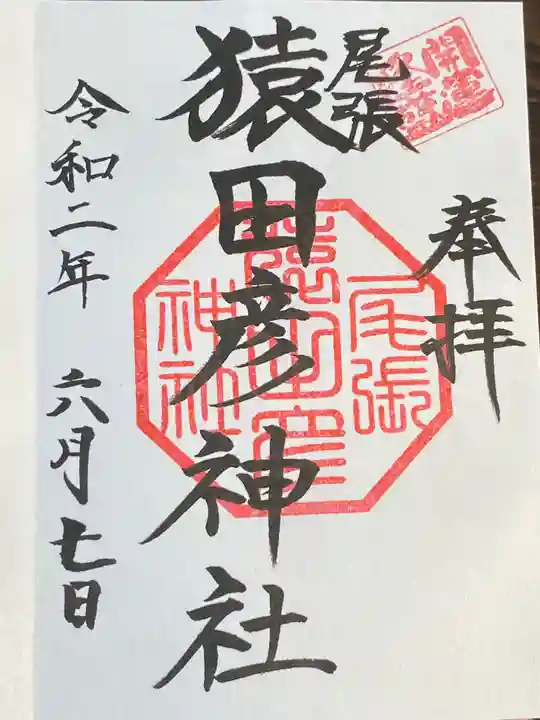 開運
奉拝
尾張
猿田彦神社
尾張
猿田彦
神社
令和二年 六月七日